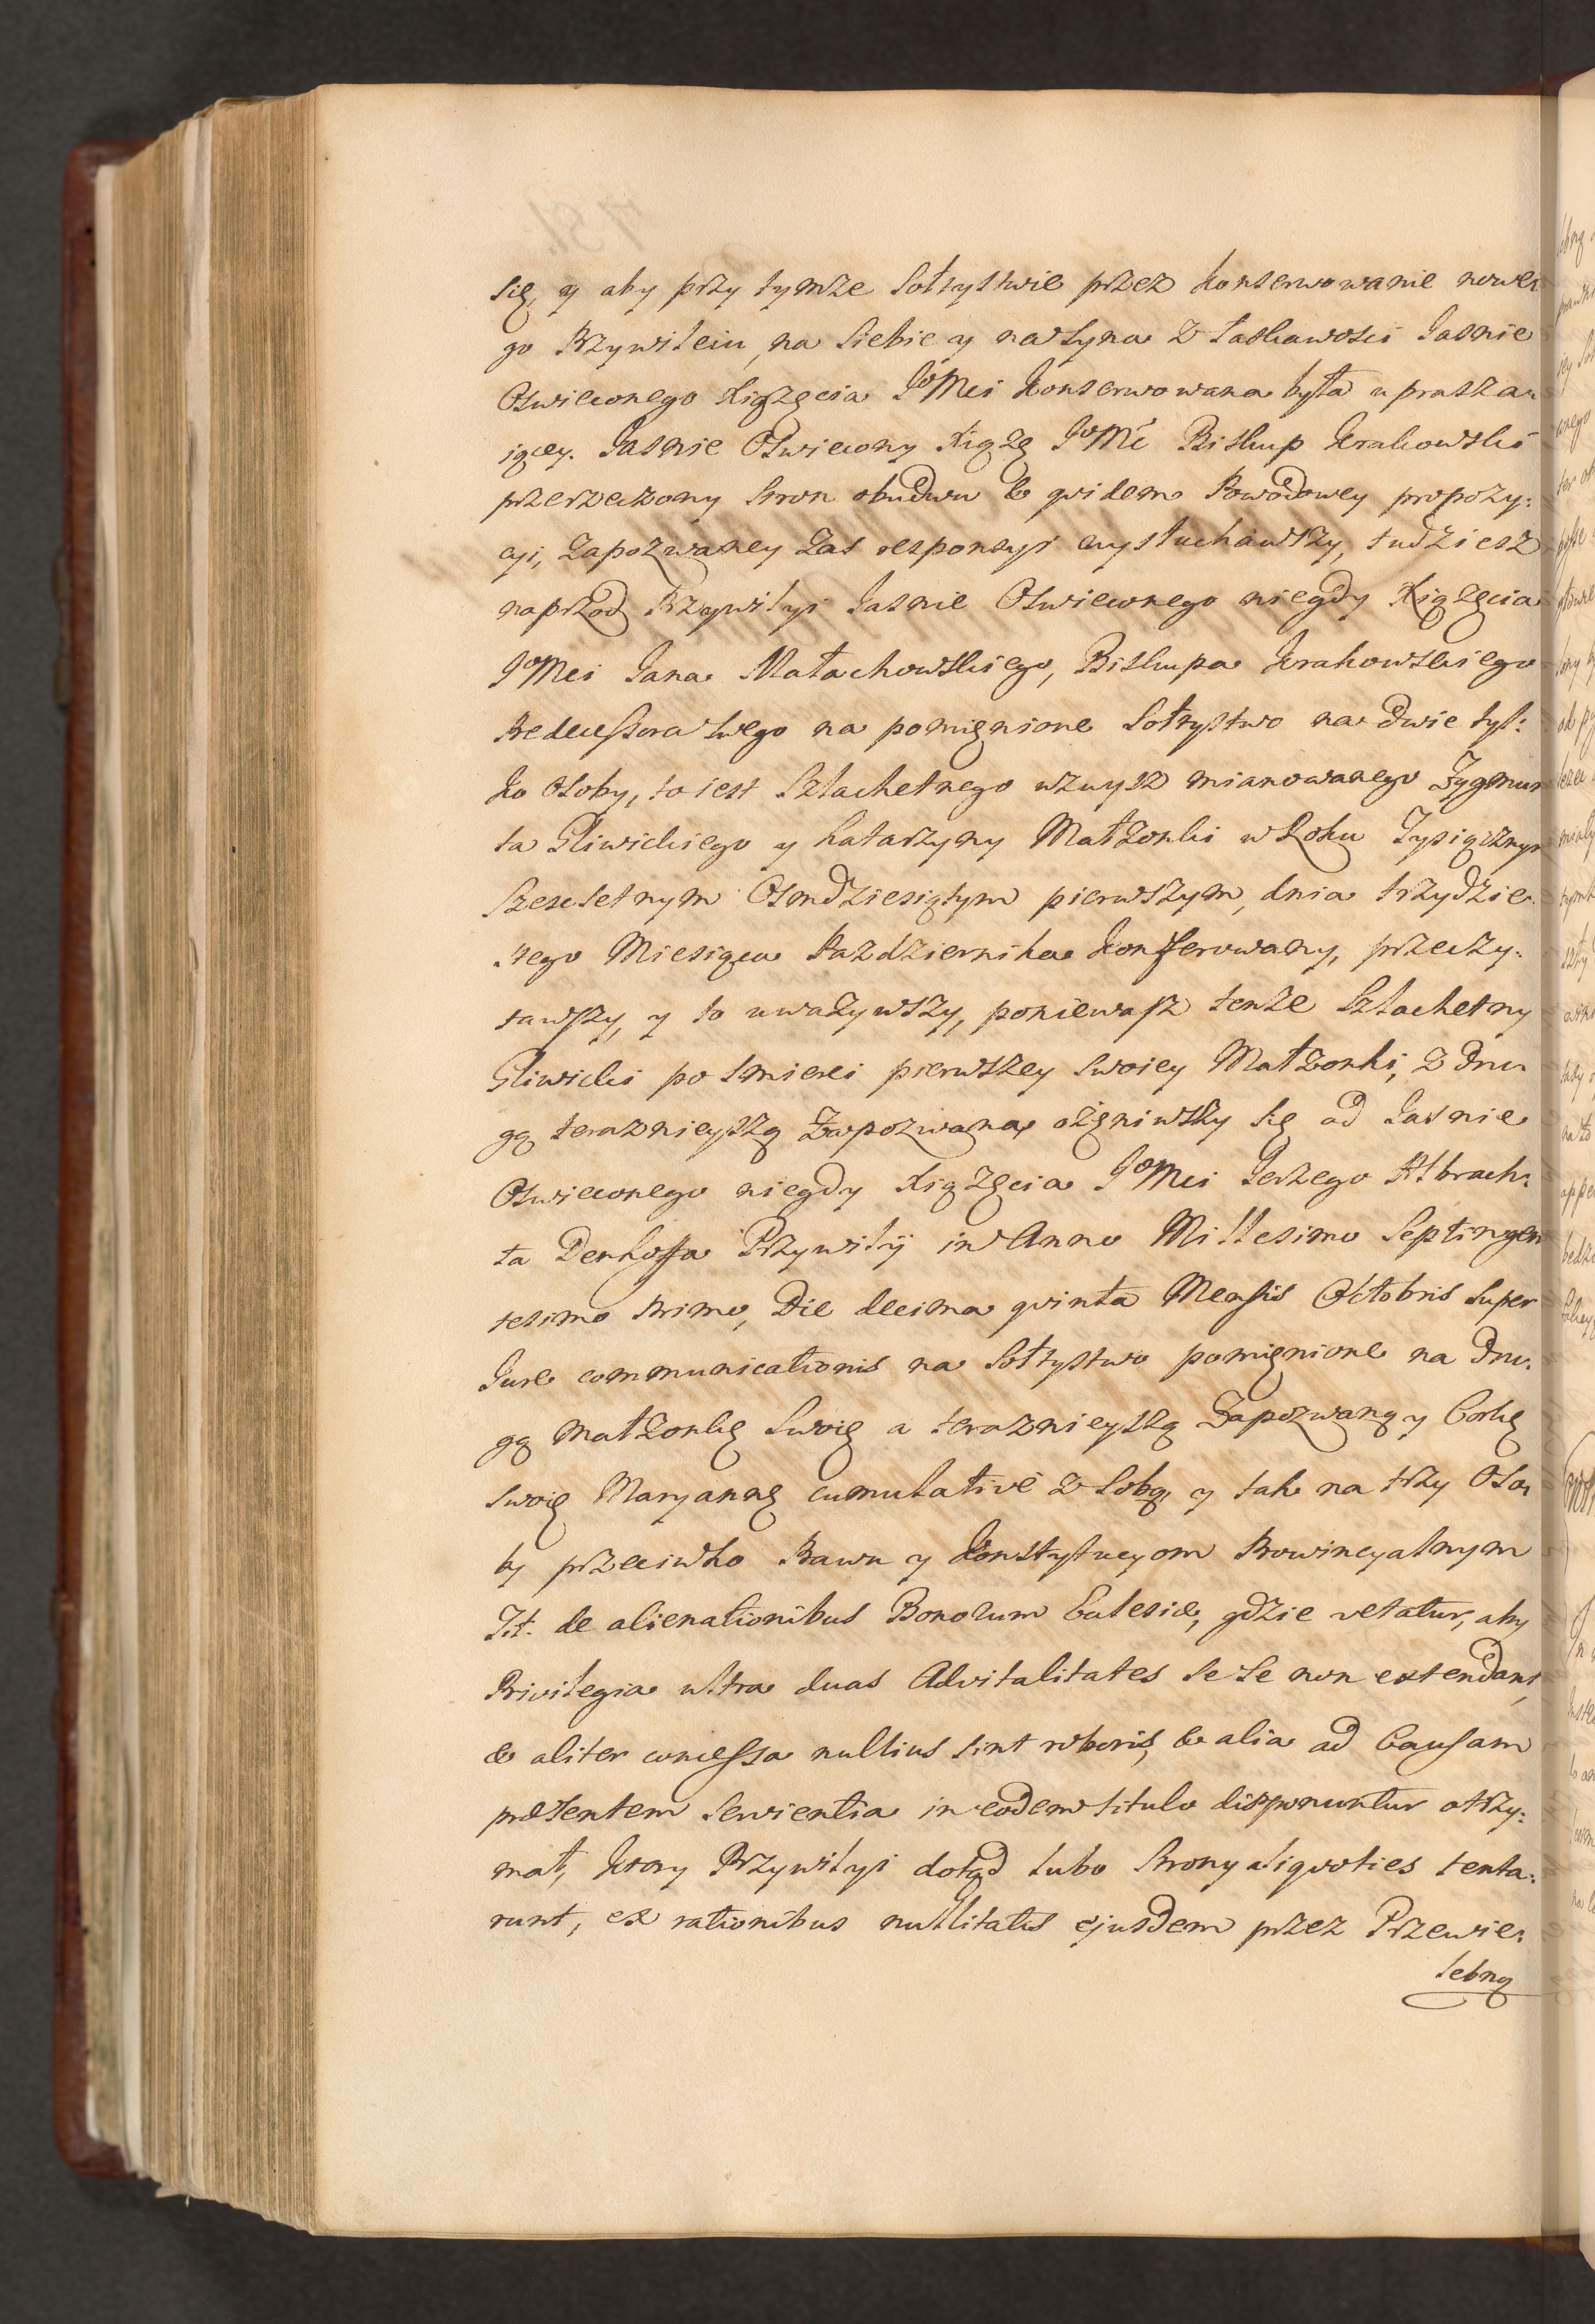 się, y aby przy tymże Sołtystwie przez konserwowanie nowe-
go Przywileiu, na siebie y na Syna z łaskawości Jasnie
Oswieconego Xiążęcia JoMci konserwowana była uprasza-
iącey. Jasnie Oswiecony Xiążę JoMć Biskup Krakowski
przerzeczony Stron obudwu & qvidem Powodowey propozy-
cyi, Zapozwaney zas responsyi wysłuchawszy, tudziesz
naprzod Przywilyi Jasnie Oswieconego niegdy Xiążęcia
JoMci Jana Małachowskiego, Biskupa Krakowskiego
Predecessora swego na pomięnione Sołtystwo na dwie tyl-
ko Osoby, to iest Szlachetnego wzwysz mianowanego Zygmun
ta Gliwickiego y Katarzyny Małżonki w Roku Tysiącznym
Szescsetnym Osmdziesiątym pierwszym, dnia trzydzie-
stego Miesiąca Pazdziernika konferowany, przeczy-
tawszy, y to uważywszy, poniewasz tenże Szlachetny
Gliwicki po smierci pierwszey swoiey Małżonki, z dru-
gą teraznieyszą Zapozwaną ożęniwszy się od Jasnie
Oswieconego niegdy Xiążęcia JoMci Jerzego Albrach-
ta Denhoffa Przywilÿ in Anno Millesimo Septingen
tesimo Primo, Die decima qvinta Mensis Octobris super
Jure communicationis na Sołtystwo pomięnione na dru-
gą Małżonkę swoię a teraznieyszą Zapozwaną y Corkę
swoię Maryannę cumulativè z sobą, y tak na trzy Oso-
by przeciwko Prawu y Konstytucyom Prowincyalnym
Tit. de alienationibus Bonorum Ecclesiæ, gdzie vetatur, aby
Privilegia ultra duas Advitalitates se se non extendant,
& aliter concessa nullius sint roboris, & alia ad Causam
præsentem servientia in eodem titulo disponuntur otrzy-
mał, ktory Przywilyi dotąd lubo Strony aliqvoties tenta-
runt, ex rationibus nullitatis ejusdem przez Przewie-
lebną